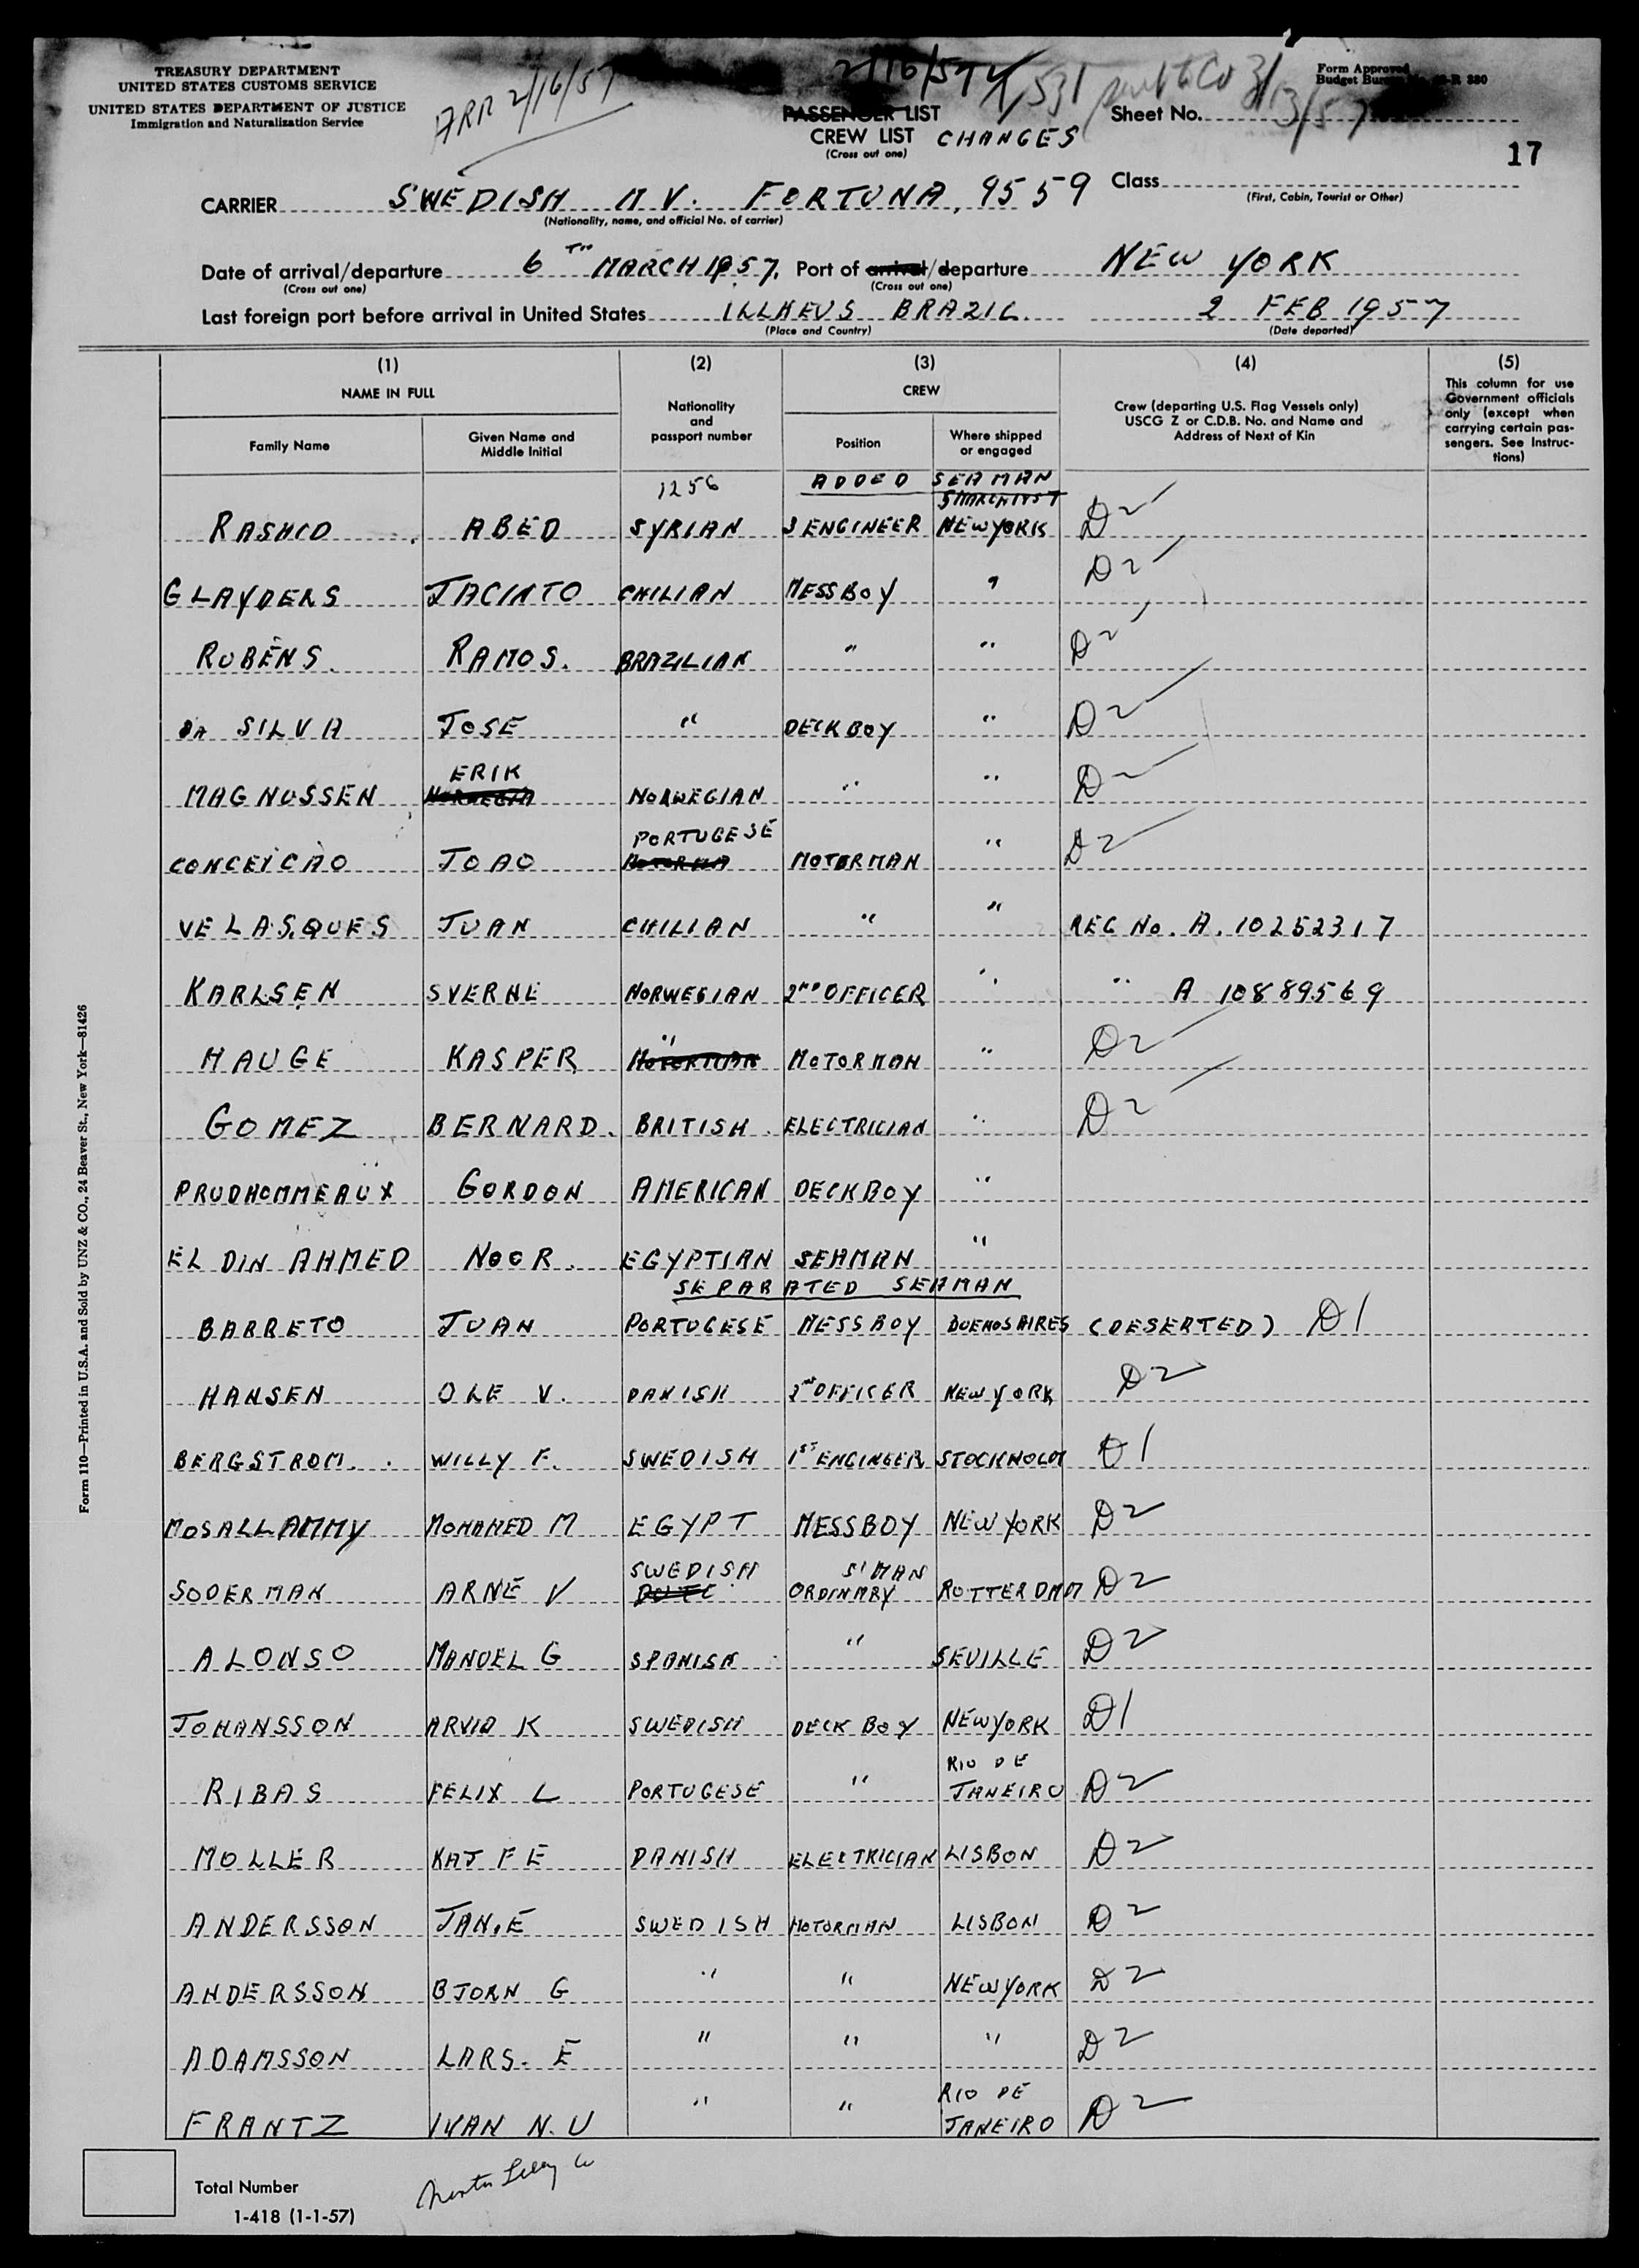 TREASURY DEPARTMENT
UNITED STATES CUSTOMS SERVICE
UNITED STATES DEPARTMENT OF JUSTICE
Immigration and Naturalization Service
ARR 2/16/57
2/16/57
531
Form Approved
Budget
R 380
PASSENGER LIST
CREW LIST CHANGES
(Cross out one)
Sheet No.
3/13/57
17
CARRIER SWEDISH M V. FORTUNA, 9559
(Nationality, name, and official No. of carrier)
Class
(First, Cabin, Tourist or Other)
Date of arrival/departure 6TH MARCH 1957. Port of arrival/departure NEW YORK
(Cross out one) (Cross out one)
Last foreign port before arrival in United States ILLHEUS BRAZIL. 2 FEB 1957
(Place and Country) (Date departed)
(1) (2) (3) (4) (5)
NAME IN FULL
Family Name
Given Name and Middle Initial
Nationality and passport number
CREW
Position
Where shipped or engaged
Crew (departing U.S. Flag Vessels only)
USCG Z or C.D.B. No. and Name and
Address of Next of Kin
This column for use
Government officials
only (except when
carrying certain pas-
sengers. See Instruc-
tions)
1256 ADDED SEAMAN
5MARCH1957
RASHID ABED SYRIAN 3 ENGINEER NEWYORK D2
GLAYDERS JACINTO CHILIAN MESSBOY " D2
RUBENS. RAMOS. BRAZILIAN " " D2
DA SILVA JOSE " DECKBOY " D2
ERIK
MAGNUSSEN NORWEGIA NORWEGIAN " " D2
PORTUGESE
CONCEICAO JOAO MOTORMA MOTORMAN " D2
VELASQUES JUAN CHILIAN " " REG No. A. 10252317
KARLSEN SVERNE NORWEGIAN 2ND OFFICER " " A 10889569
HAUGE KASPER " MOTORMAN MOTORMAN " D2
GOMEZ BERNARD. BRITISH ELECTRICIAN " D2
PRUDHOMMEAUX GORDON AMERICAN DECKBOY "
EL DIN AHMED NOOR. EGYPTIAN SEAMAN "
SEPARATED SEAMAN
BARRETO JUAN PORTUGESE MESSBOY BUENOS AIRES (DESERTED) D1
HANSEN OLE V. DANISH 2ND OFFICER NEWYORK D2
BERGSTROM. WILLY F. SWEDISH 1ST ENGINEER STOCKHOLM D1
MOSALLAMMY MOHAMED M EGYPT MESSBOY NEWYORK D2
SWEDISH S'MAN
SODERMAN ARNE V ORDINARY ROTTERDAM D2
ALONSO MANUEL G SPANISH " SEVILLE D2
JOHANSSON ARVID K SWEDISH DECK BOY NEWYORK D1
RIO DE
RIBAS FELIX L PORTUGESE " JANEIRO D2
MOLLER KAJ F E DANISH ELECTRICIAN LISBON D2
ANDERSSON JAN.E SWEDISH MOTORMAN LISBON D2
ANDERSSON BJORN G " " NEWYORK D2
ADAMSSON LARS. E " " " D2
RIO DE
FRANTZ IVAN N.U " " JANEIRO D2
Total Number
1-418 (1-1-57)
Form 110—Printed in U.S.A. and Sold by UNZ & CO., 24 Beaver St., New York—81426